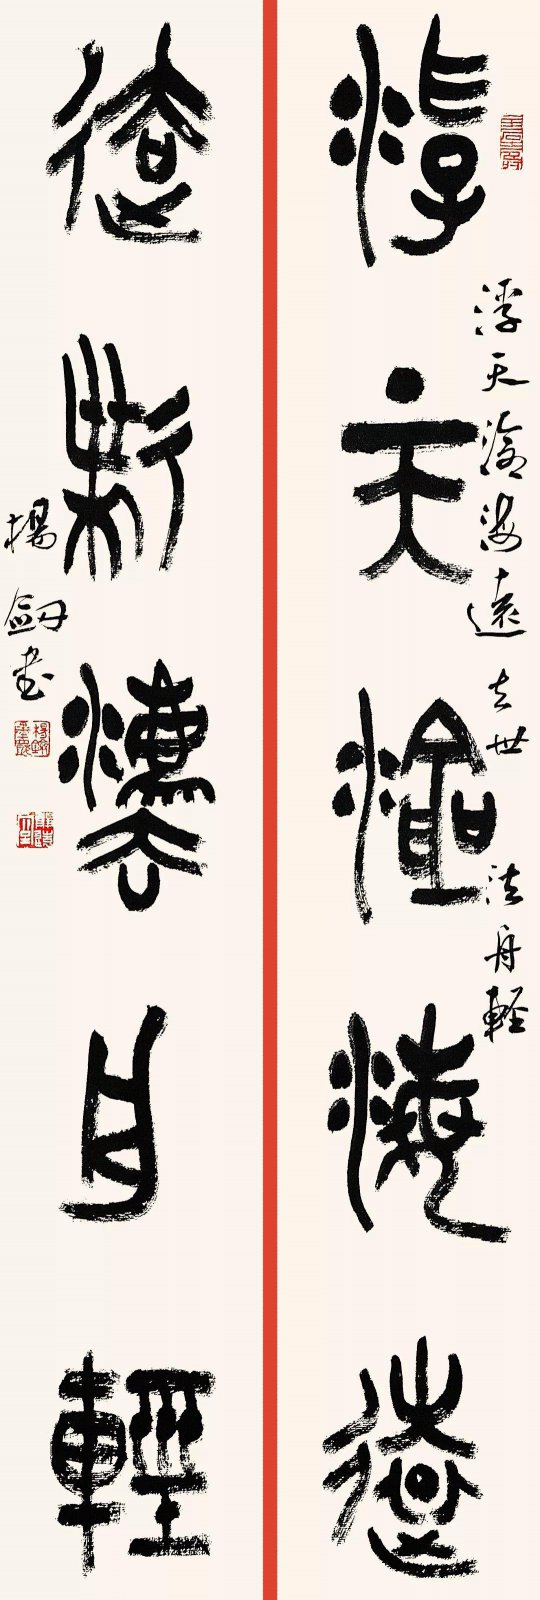 浮天滄海遠
浮天滄海遠去世法舟輕
去世法舟輕
楊劒書